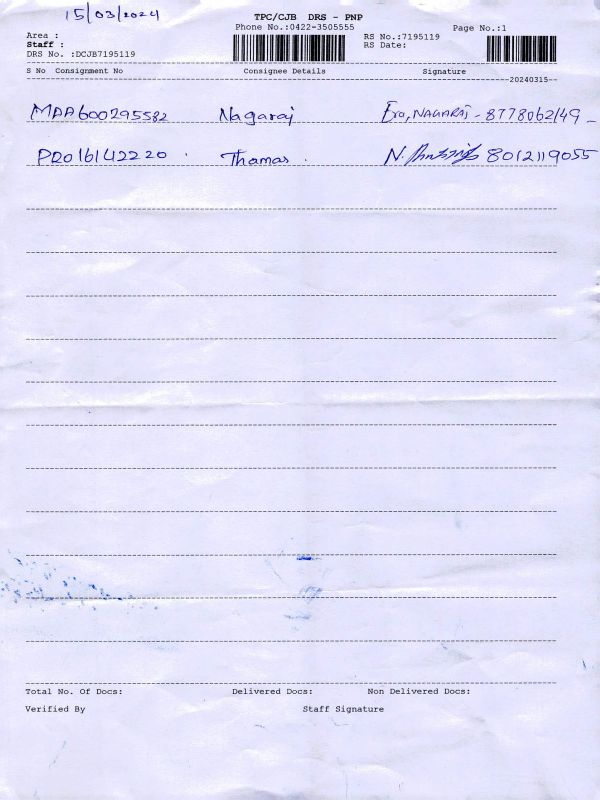 15/03/2024
TPC/CJB DRS - PNP
Phone No.:0422-3505555
Page No.:1
Area :
RS No.:7195119
Staff :
RS Date:
DRS No. :DCJB7195119
S No Consignment No Consignee Details Signature
20240315
MAA600295582 Nagaraj NAGARAJ - 8778062149
PRO16142220 Thamas N. 8012119055
Total No. Of Docs: Delivered Docs: Non Delivered Docs:
Verified By Staff Signature